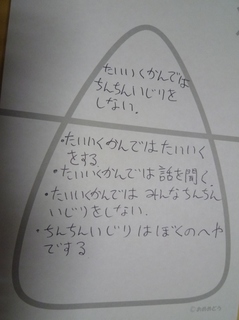 たいいくかんでは
ちんちんいじりを
しない.
・たいいくかんではたいいく
をする
・たいいくかんでは話を聞く.
・たいいくかんでは みんなちんちん
いじりをしない.
・ちんちんいじり はぼくのへや
でする